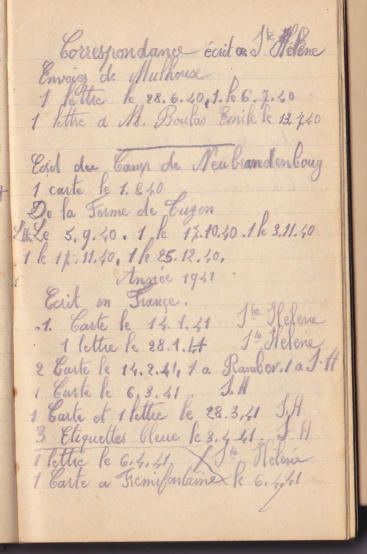 Correspondance écrit a Ste Hélène
Envoier de Mulhouse
1 lettre le 28.6.40, 1. le 6.7.40
1 lettre a M. Boulas Emile le 12.7.40
Ecrit du Camp de Neubrandenboug
1 carte le 1.8.40
De la Ferme de
Le 5.9.40. 1 le 17.10.40. 1 le 3.11.40
1 le 17.11.40, 1 le 25.12.40.
Année 1941
Ecrit en France.
1. Carte le 14.1.41 Ste Hélène
1 lettre le 28.1.41 Ste Hélène
2 Carte le 14.2.41, 1 a Ramber. 1 a S.H
1 Carte le 6.3.41 S.H
1 Carte et 1 lettre le 28.3.41 S.H
3 Etiquettes bleue le 3.4.41. S.H
1 lettre le 6.4.41. Ste Hélène
1 Carte a Fremifontaine le 6.4.41